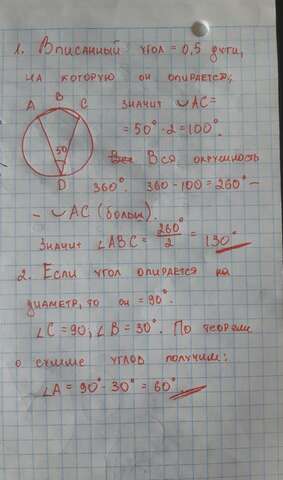 1. Вписанный угол = 0,5 дуги,
на которую он опирается;
B
A C
50
D
значит ◡AC=
= 50° · 2 = 100°.
Вся окружность
360°. 360 - 100 = 260° -
- ◡AC (больш).
Значит ∠ABC = 260°/2 = 130°
2. Если угол опирается на
диаметр, то он = 90°.
∠C = 90; ∠B = 30°. По теореме
о сумме углов получим:
∠A = 90° - 30° = 60°